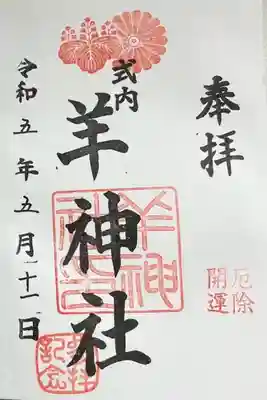 奉拝
厄除
開運
式内
羊神社
羊神社
参拝記念
令和五年五月十一日